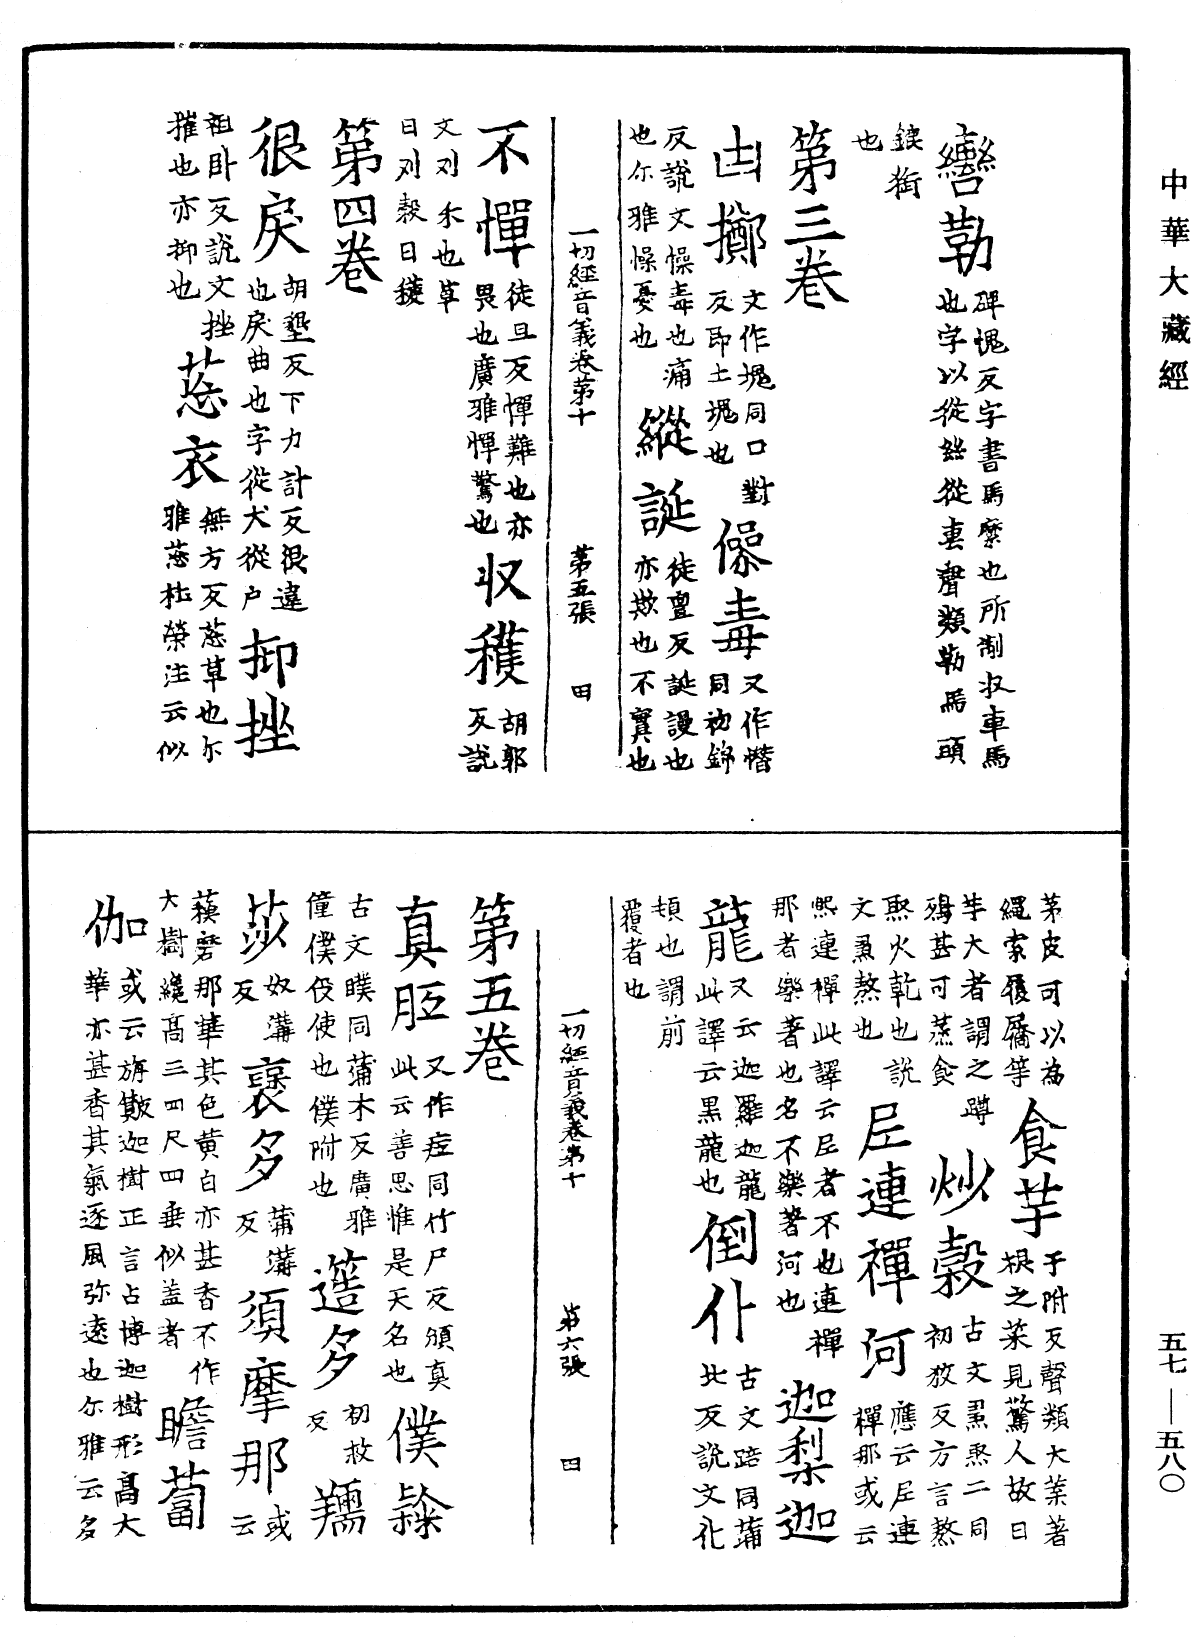 中華大藏經
轡勒 碑愧反字書馬縻也所制收車馬
也字以從絲從車聲類勒馬頭
鑣銜
也
第三卷
凷擲 文作塊同口對
反即土塊也
𢤱毒 又作憯
同初錦
反說文懆毒也痛
也尒雅懆憂也
縱誕 徒亶反誕謾也
亦欺也不實也
一切經音義卷第十 第五張 田
不憚 徒旦反憚難也亦
畏也廣雅憚驚也
収穫 胡郭
反說
文刈禾也草
曰刈穀曰穫
第四卷
很戾 胡墾反下力計反很違
也戾曲也字從犬從户
抑挫
祖卧反說文挫
摧也亦抑也
葾衣 無方反葾草也尒
雅葾杜榮注云似
茅皮可以為
繩索履屩等
食芋 于附反聲類大葉著
根之菜見驚人故曰
芋大者謂之蹲
鴟甚可蒸食
炒穀 古文𤋱㷅二同
初狡反方言熬
聚火乾也說
文𤋱熬也
尼連禪河 應云尼連
禪那或云
熙連禪此譯云尼者不也連禪
那者樂著也名不樂著河也
迦梨迦
龍 又云迦羅迦龍
此譯云黑龍也
倒仆 古文踣同蒲
北反說文仆
頓也謂前
覆者也
一切經音義卷第十 第六張 四
第五卷
真胝 又作疷同竹尸反頞真
此云善思惟是天名也
僕隸
古文䑑同蒲木反廣雅
僮僕伇使也僕附也
簉多 初救
反
羺
莎 奴溝
反
裒多 蒲溝
反
須摩那 或
云
蘇磨那華其色黃白亦甚香不作
大樹纔高三四尺四垂似蓋者
瞻蔔
伽 或云旃䉤迦樹正言占博迦樹形高大
華亦甚香其氣逐風弥遠也尒雅云多
五七—五八〇